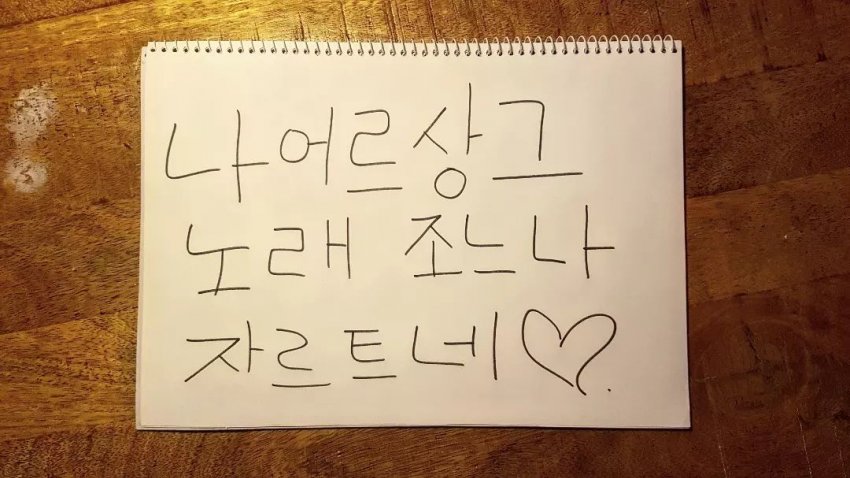 나어르상그
노래 조느나
자르트네♡.